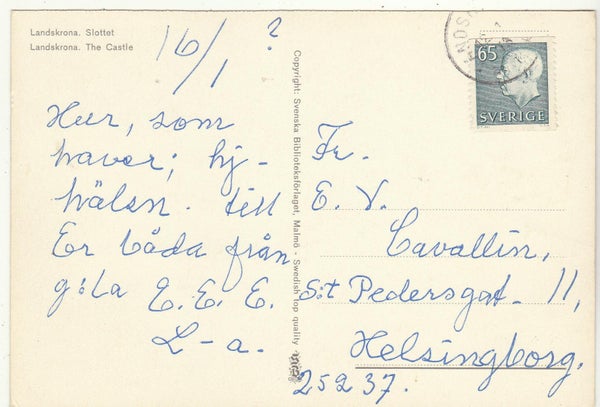 Landskrona. Slottet
Landskrona. The Castle
16/1 ?
Hur, som
haver; hj-
hälsn. till
Er båda från
g:la E. E. E.
L-a.
Copyright: Svenska Biblioteksförlaget, Malmö - Swedish top quality
65
SVERIGE
Fr.
E. V.
Cavallin,
S:t Pedersgat. 11,
Helsingborg.
25237.